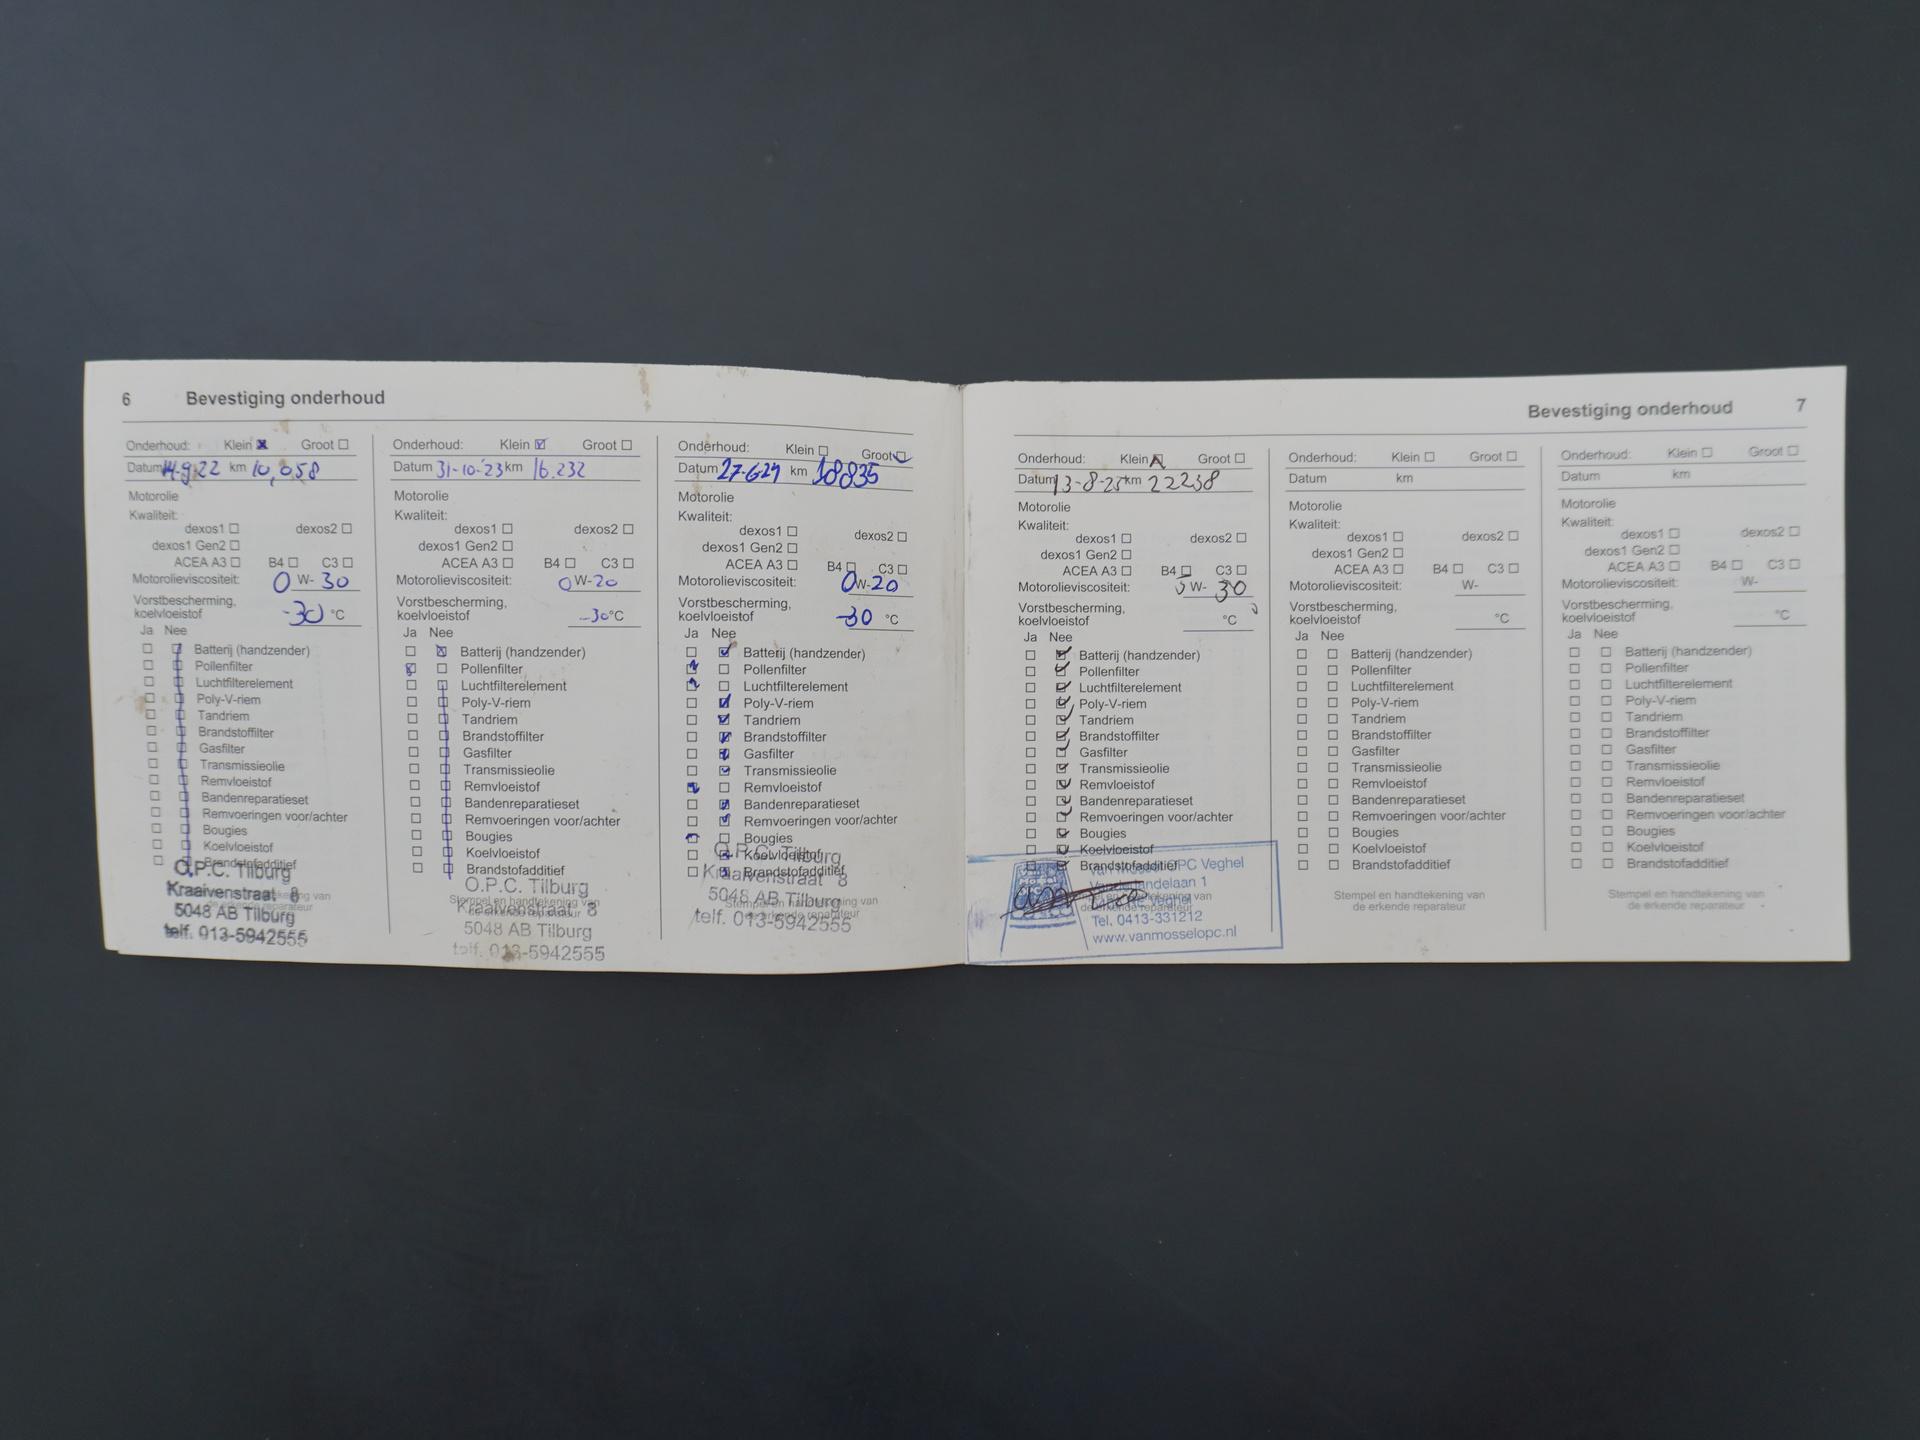 6 Bevestiging onderhoud
Onderhoud: Klein Groot
Datum 14-9-22 km 10,058
Motorolie
Kwaliteit:
dexos1 dexos2
dexos1 Gen2
ACEA A3 B4 C3
Motorolieviscositeit: 0 W- 30
Vorstbescherming,
koelvloeistof -30 °C
Ja Nee
Batterij (handzender)
Pollenfilter
Luchtfilterelement
Poly-V-riem
Tandriem
Brandstoffilter
Gasfilter
Transmissieolie
Remvloeistof
Bandenreparatieset
Remvoeringen voor/achter
Bougies
Koelvloeistof
Brandstofadditief
O.P.C. Tilburg
Kraaivenstraat 8
5048 AB Tilburg
telf. 013-5942555
Onderhoud: Klein Groot
Datum 31-10-23 km 16.232
Motorolie
Kwaliteit:
dexos1 dexos2
dexos1 Gen2
ACEA A3 B4 C3
Motorolieviscositeit: 0 W-20
Vorstbescherming,
koelvloeistof -30°C
Ja Nee
Batterij (handzender)
Pollenfilter
Luchtfilterelement
Poly-V-riem
Tandriem
Brandstoffilter
Gasfilter
Transmissieolie
Remvloeistof
Bandenreparatieset
Remvoeringen voor/achter
Bougies
Koelvloeistof
Brandstofadditief
O.P.C. Tilburg
Stempel en handtekening van
de erkende reparateur
Kraaivenstraat 8
5048 AB Tilburg
telf. 013-5942555
Onderhoud: Klein Groot
Datum 27-6-24 km 18835
Motorolie
Kwaliteit:
dexos1 dexos2
dexos1 Gen2
ACEA A3 B4 C3
Motorolieviscositeit: 0W-20
Vorstbescherming,
koelvloeistof -30 °C
Ja Nee
Batterij (handzender)
Pollenfilter
Luchtfilterelement
Poly-V-riem
Tandriem
Brandstoffilter
Gasfilter
Transmissieolie
Remvloeistof
Bandenreparatieset
Remvoeringen voor/achter
Bougies
Koelvloeistof
Brandstofadditief
O.P.C. Tilburg
Kraaivenstraat 8
5048 AB Tilburg
Stempel en handtekening van
de erkende reparateur
telf. 013-5942555
Bevestiging onderhoud 7
Onderhoud: Klein Groot
Datum 13-8-25 km 22238
Motorolie
Kwaliteit:
dexos1 dexos2
dexos1 Gen2
ACEA A3 B4 C3
Motorolieviscositeit: 5 W- 30
Vorstbescherming,
koelvloeistof °C
Ja Nee
Batterij (handzender)
Pollenfilter
Luchtfilterelement
Poly-V-riem
Tandriem
Brandstoffilter
Gasfilter
Transmissieolie
Remvloeistof
Bandenreparatieset
Remvoeringen voor/achter
Bougies
Koelvloeistof
Brandstofadditief
OPC Veghel
Veghel
Tel. 0413-331212
www.vanmosselopc.nl
Onderhoud: Klein Groot
Datum km
Motorolie
Kwaliteit:
dexos1 dexos2
dexos1 Gen2
ACEA A3 B4 C3
Motorolieviscositeit: W-
Vorstbescherming,
koelvloeistof °C
Ja Nee
Batterij (handzender)
Pollenfilter
Luchtfilterelement
Poly-V-riem
Tandriem
Brandstoffilter
Gasfilter
Transmissieolie
Remvloeistof
Bandenreparatieset
Remvoeringen voor/achter
Bougies
Koelvloeistof
Brandstofadditief
Stempel en handtekening van
de erkende reparateur
Onderhoud: Klein Groot
Datum km
Motorolie
Kwaliteit:
dexos1 dexos2
dexos1 Gen2
ACEA A3 B4 C3
Motorolieviscositeit: W-
Vorstbescherming,
koelvloeistof °C
Ja Nee
Batterij (handzender)
Pollenfilter
Luchtfilterelement
Poly-V-riem
Tandriem
Brandstoffilter
Gasfilter
Transmissieolie
Remvloeistof
Bandenreparatieset
Remvoeringen voor/achter
Bougies
Koelvloeistof
Brandstofadditief
Stempel en handtekening van
de erkende reparateur